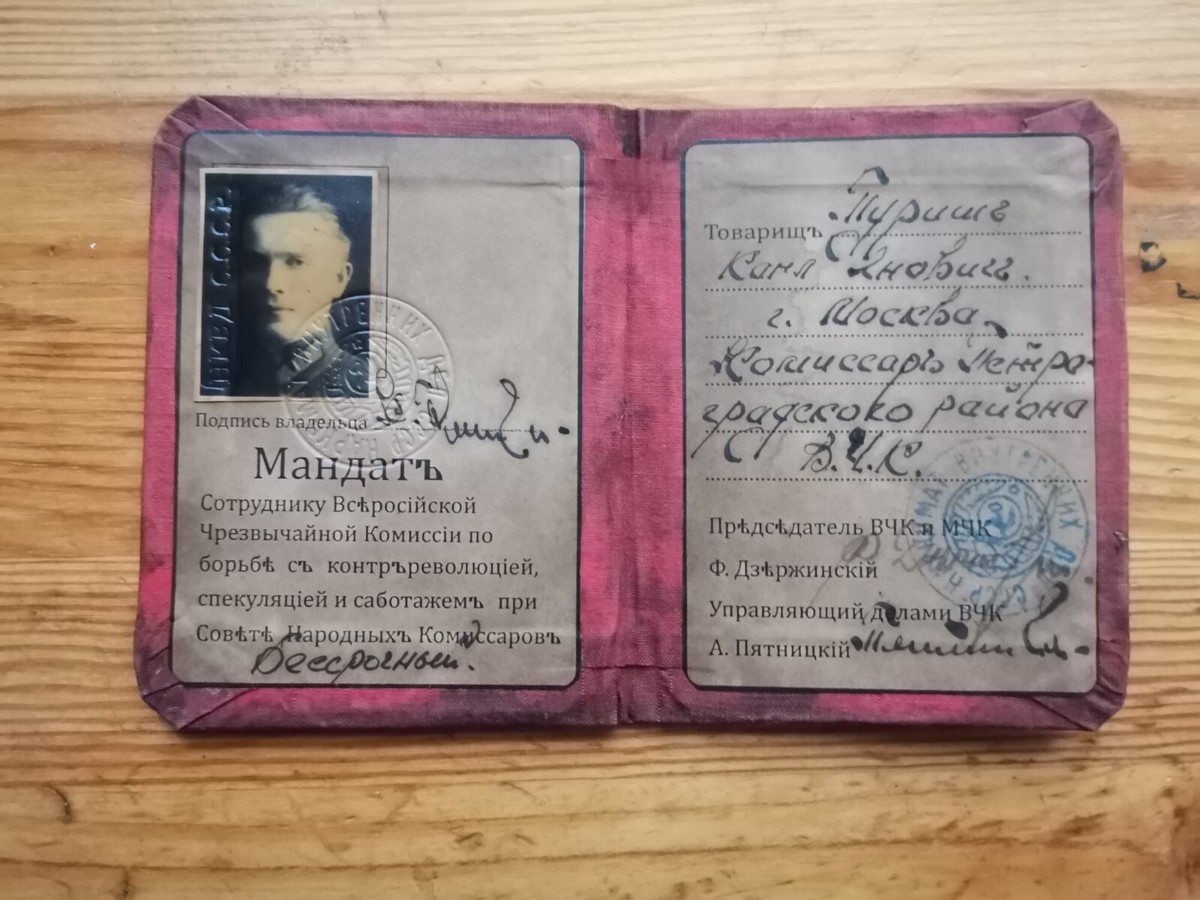 НКВД С.С.С.Р.
Подпись владельца
Мандатъ
Сотруднику Всѣросійской
Чрезвычайной Комиссіи по
борьбѣ съ контръреволюціей,
спекуляціей и саботажемъ при
Совѣтѣ Народныхъ Комиссаровъ
Бессрочный.
Товарищъ Пуришъ
Карл Янович.
г. Москва
Комиссаръ Петра-
градского района
В.Ч.К.
Прѣдсѣдатель ВЧК и МЧК
Ф. Дзѣржинскій
Управляющий дѣлами ВЧК
А. Пятницкій
ВНУТРЕННИХ
ВНУТРЕННИХ